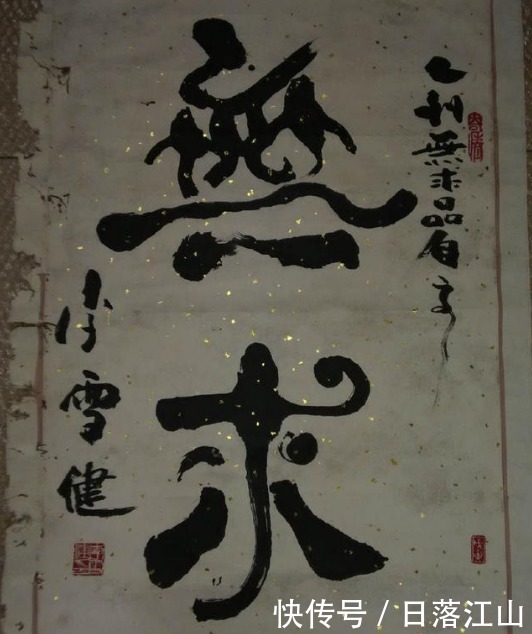 人到無求品自高
無求
李雪健
快传号 / 日落江山